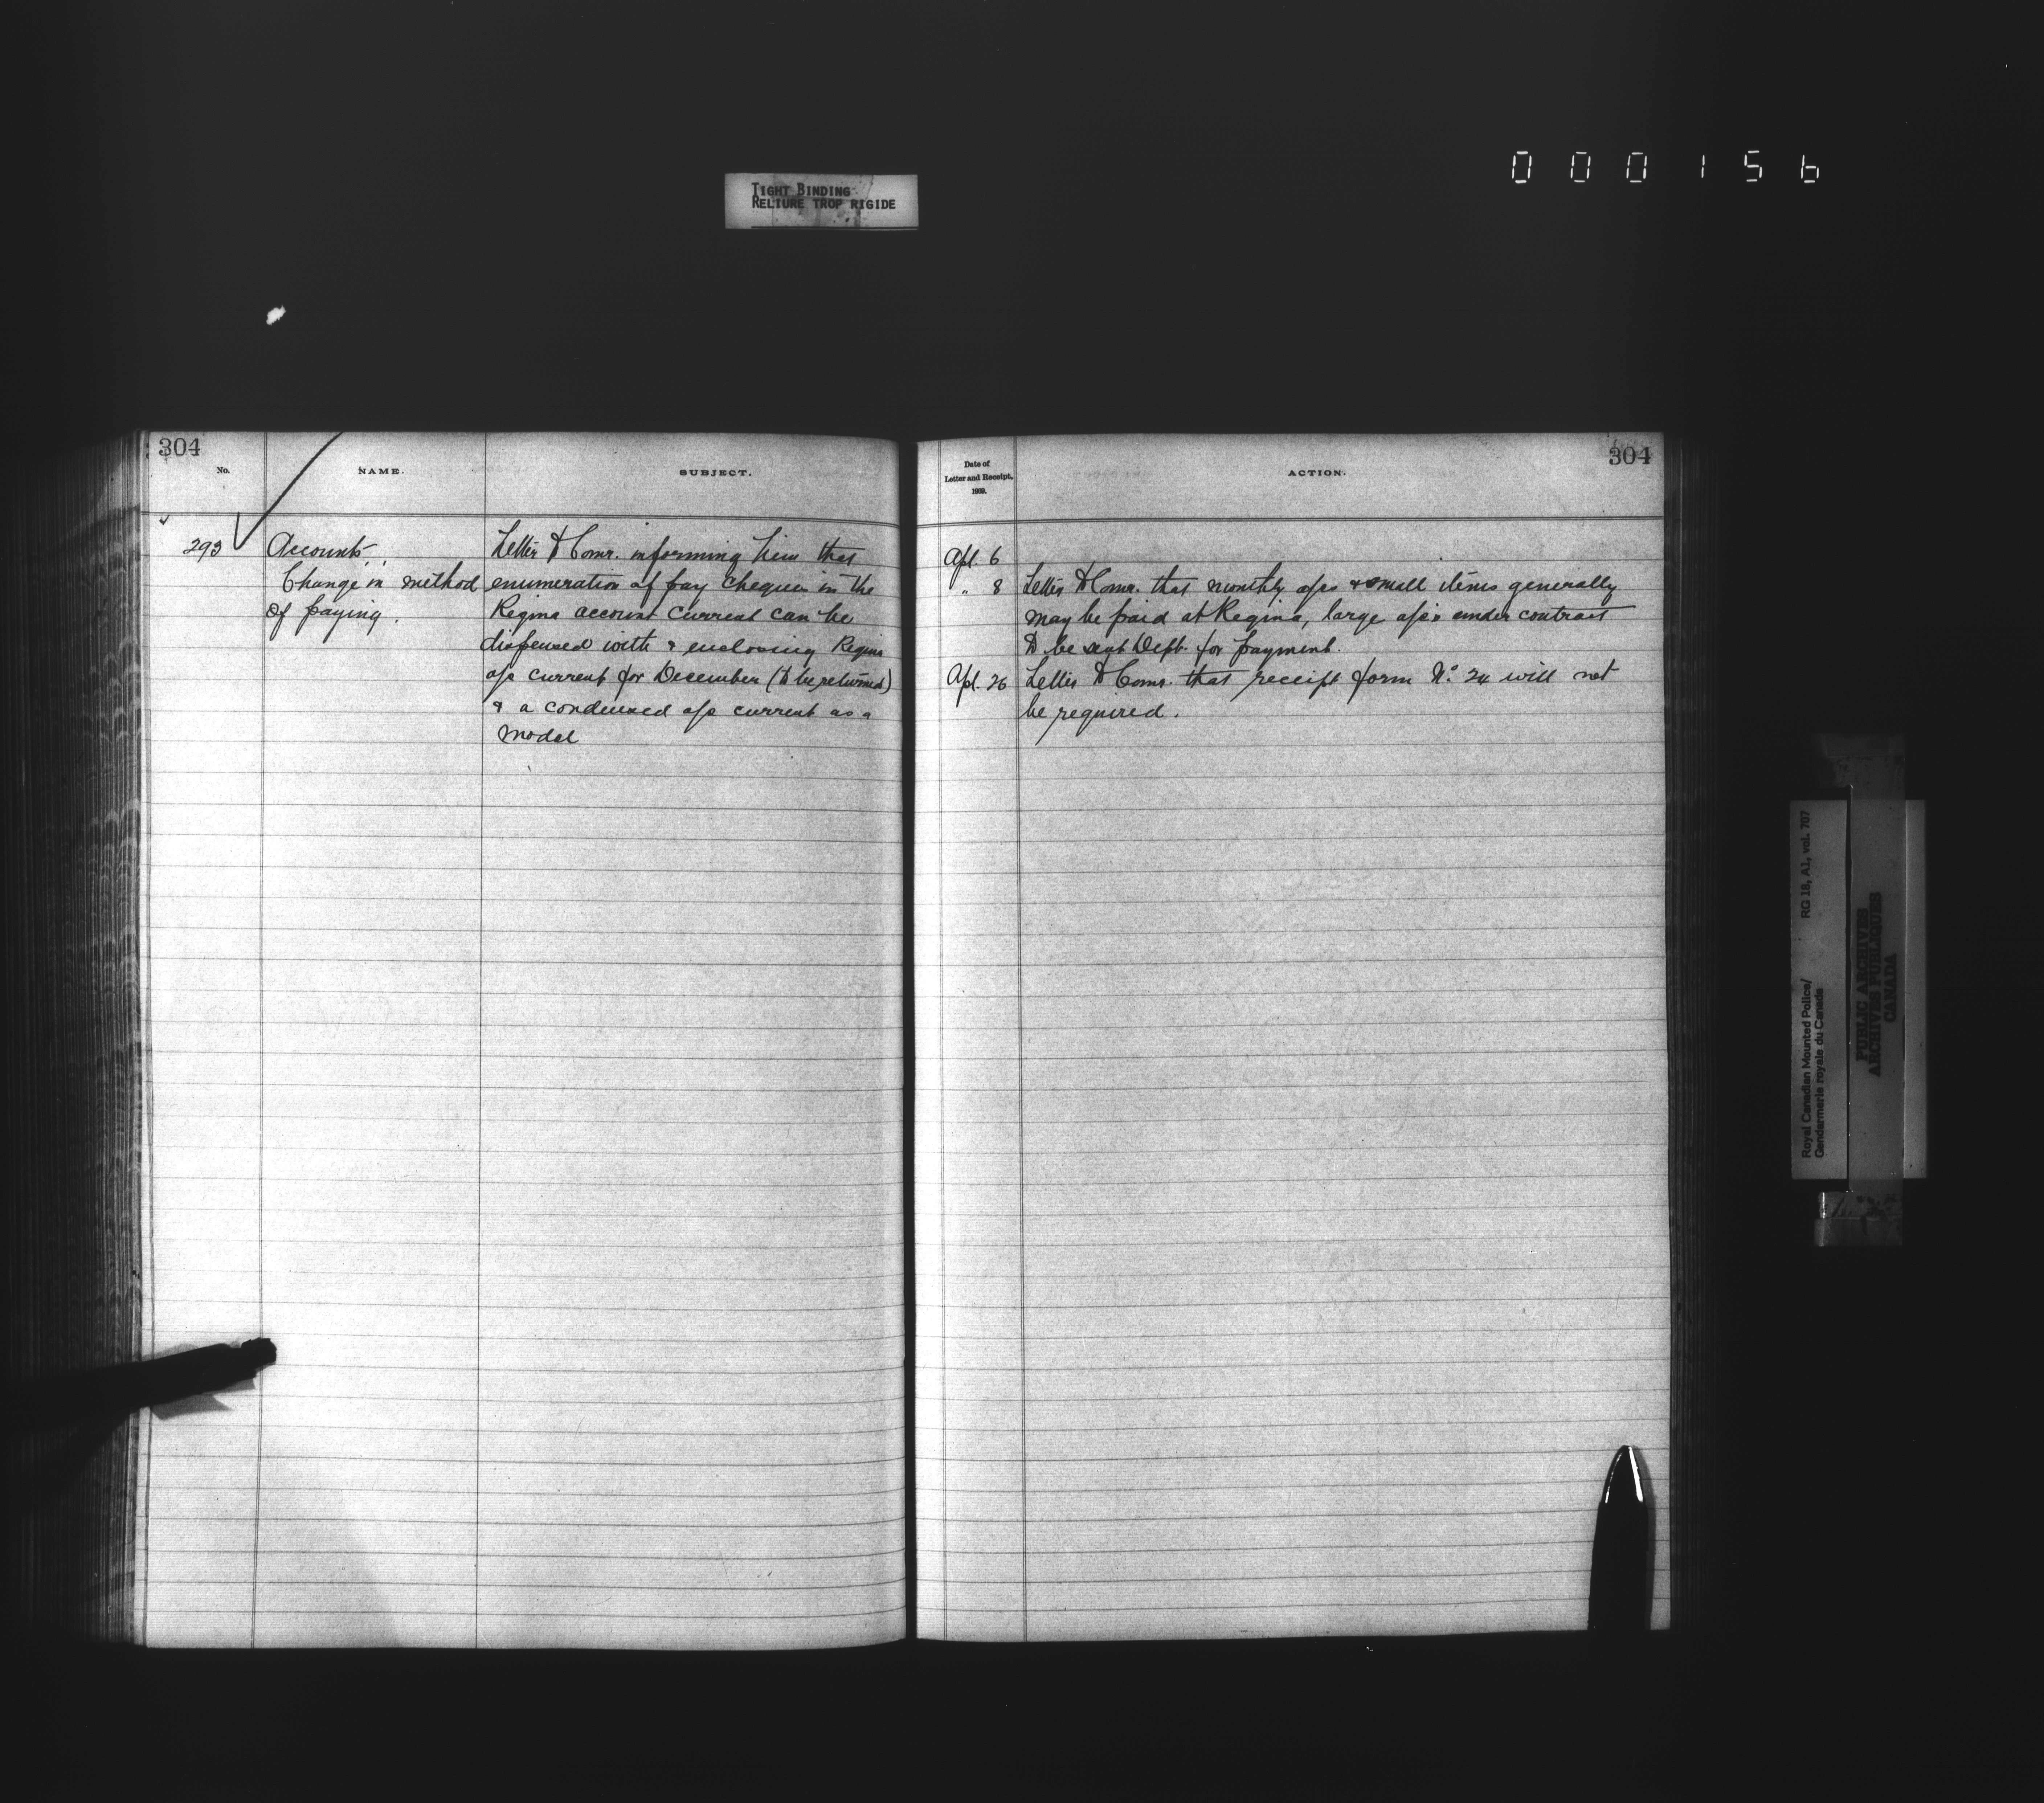 000156
TIGHT BINDING
RELIURE TROP RIGIDE
304
No.
NAME.
SUBJECT.
293
Accounts
Change in method
of paying.
Letter to Comr. informing him that
enumeration of pay cheques in the
Regina account current can be
dispensed with & enclosing Regina
a/c current for December (to be returned)
& a condensed a/c current as a
model
304
Date of
Letter and Receipt,
1909.
ACTION.
Apl. 6
" 8 Letter to Comr. that monthly a/cs & small items generally
may be paid at Regina, large a/cs under contract
to be sent Dept. for payment.
Apl. 26 Letter to Comr. that receipt form No. 24 will not
be required.
Royal Canadian Mounted Police/
Gendarmerie royale du Canada
RG 18, A1, vol. 707
PUBLIC ARCHIVES
ARCHIVES PUBLIQUES
CANADA